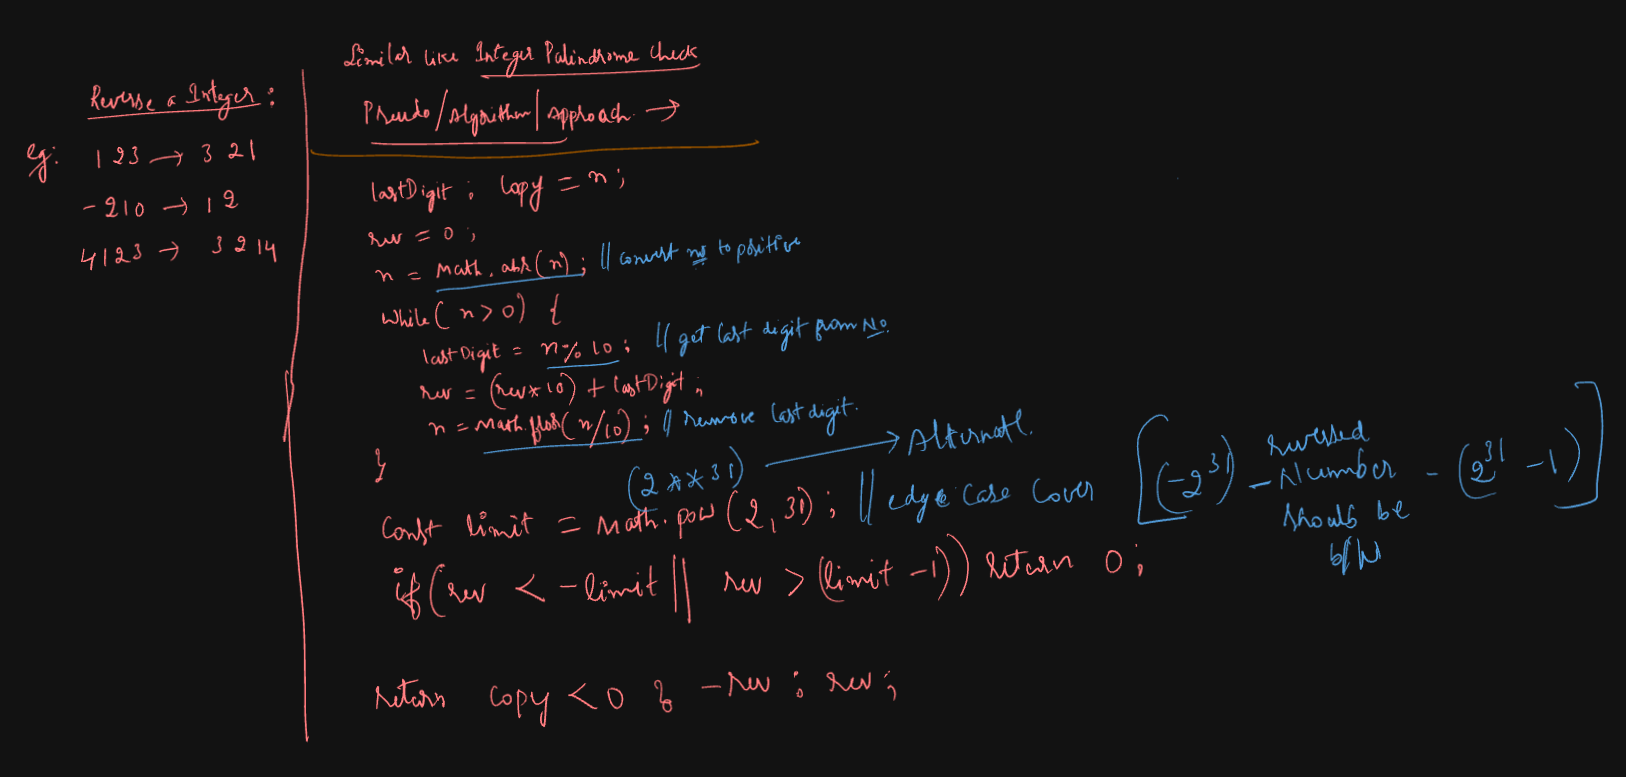 Reverse a Integer :
eg: 123 → 321
-210 → 12
4123 → 3214
Similar like Integer Palindrome check
Pseudo/Algorithm|approach →
lastDigit ; copy = n;
rev = 0 ;
n = Math.abs(n) ; // convert no to positive
while( n > 0) {
lastDigit = n % 10 ; // get last digit from No.
rev = (rev * 10) + lastDigit ;
n = Math.floor(n/10) ; // remove last digit.
}
(2 ** 31) → Alternate.
const limit = Math.pow(2, 31) ; // edge case cover [(-2^31) - reversed Number should be b/w - (2^31 - 1)]
if(rev < -limit || rev > (limit -1)) return 0 ;
return copy < 0 ? -rev : rev ;